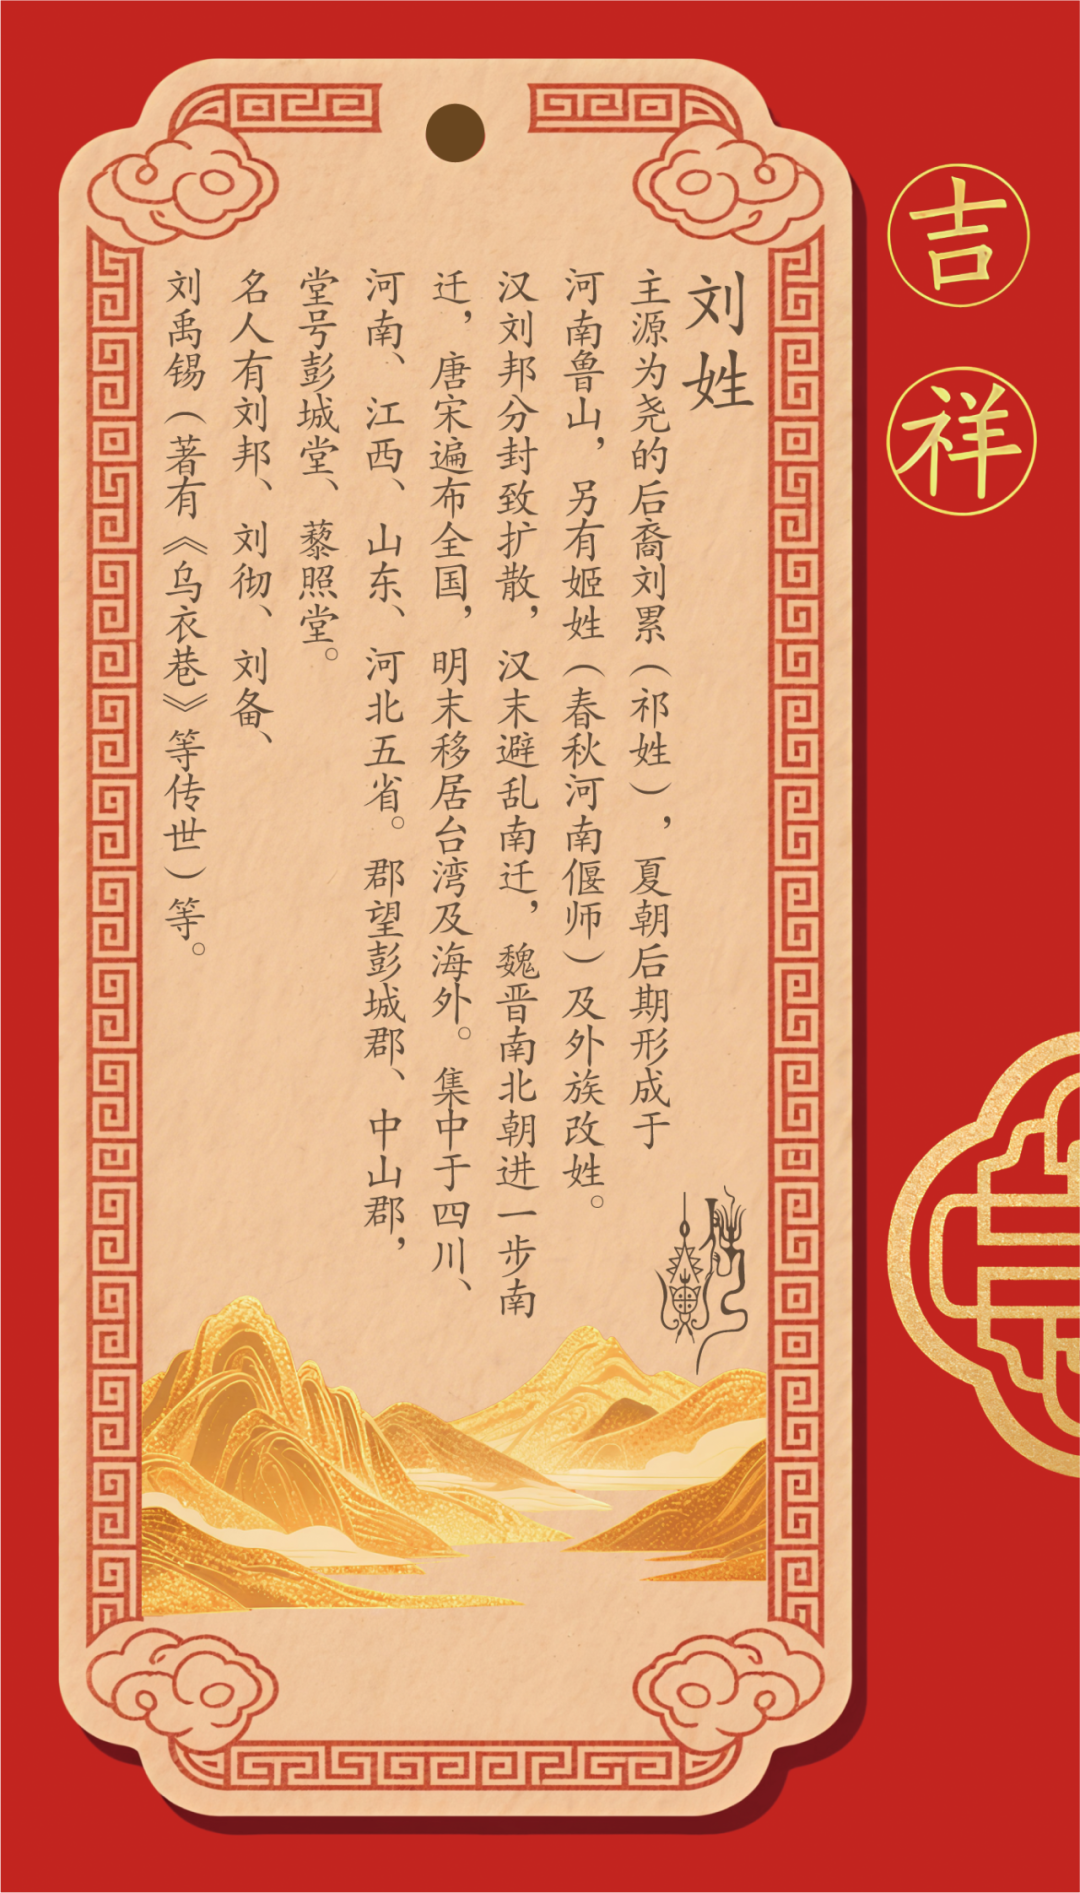 吉祥
刘姓
主源为尧的后裔刘累（祁姓），夏朝后期形成于
河南鲁山，另有姬姓（春秋河南偃师）及外族改姓。
汉刘邦分封致扩散，汉末避乱南迁，魏晋南北朝进一步南
迁，唐宋遍布全国，明末移居台湾及海外。集中于四川、
河南、江西、山东、河北五省。郡望彭城郡、中山郡，
堂号彭城堂、藜照堂。
名人有刘邦、刘彻、刘备、
刘禹锡（著有《乌衣巷》等传世）等。